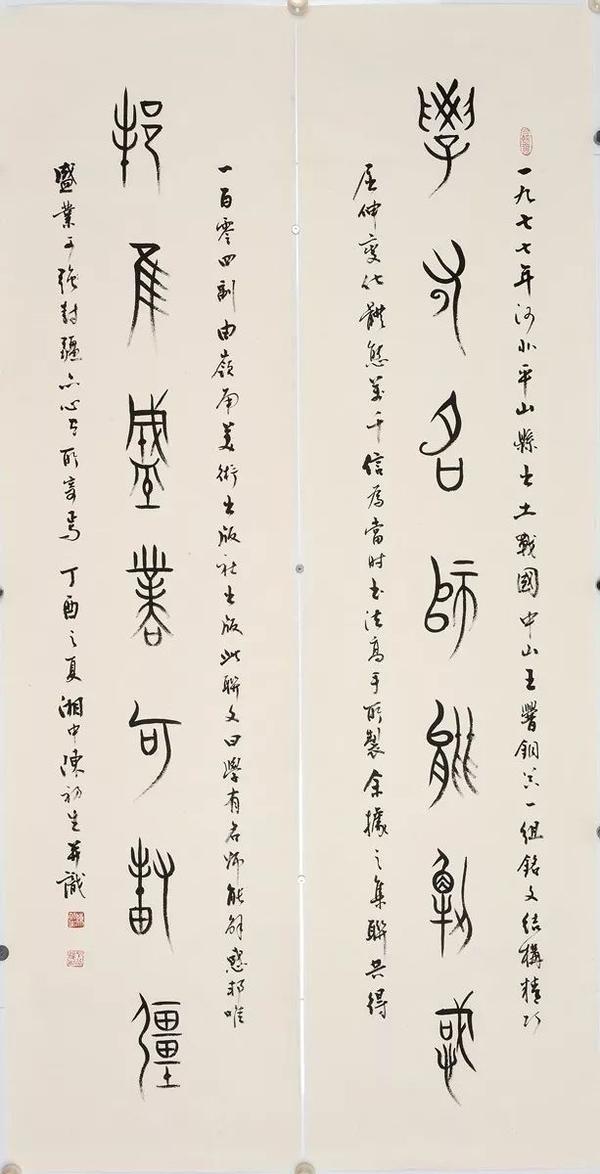 一九七七年河北平山縣出土戰國中山王䚇銅器一組銘文結構精巧
學有名師能解惑
屈伸變化體態萬千信爲當時書法高手所製余據之集聯共得
一百零四副由嶺南美術出版社出版此聯文曰學有名師能解惑邦唯
邦隹盛業可封疆
盛業可強封疆亦心之所寄焉 丁酉之夏湘中陳初生并識